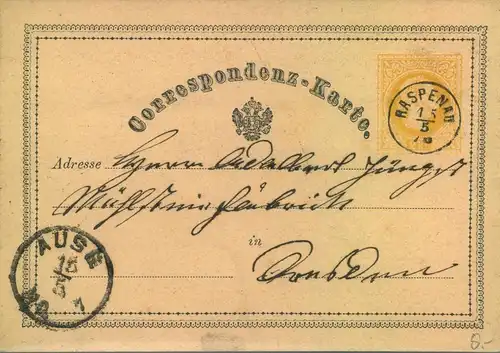 Correspondenz-Karte.
RASPENAU
15
5
Adresse Herrn Adalbert Jüngst
Mühlsteinfabrik
in
Dresden
AUSG
15
5
6.-